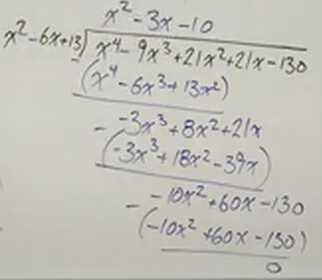 x² - 3x - 10
x² - 6x + 13 ) x⁴ - 9x³ + 21x² + 21x - 130
- (x⁴ - 6x³ + 13x²)
-3x³ + 8x² + 21x
- (-3x³ + 18x² - 39x)
-10x² + 60x - 130
- (-10x² + 60x - 130)
0